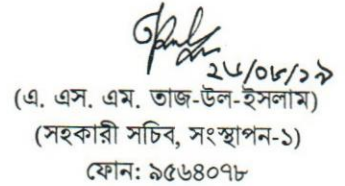 ২৮/০৮/১৯
(এ. এস. এম. তাজ-উল-ইসলাম)
(সহকারী সচিব, সংস্থাপন-১)
ফোন: ৯৫৬৪০৭৮